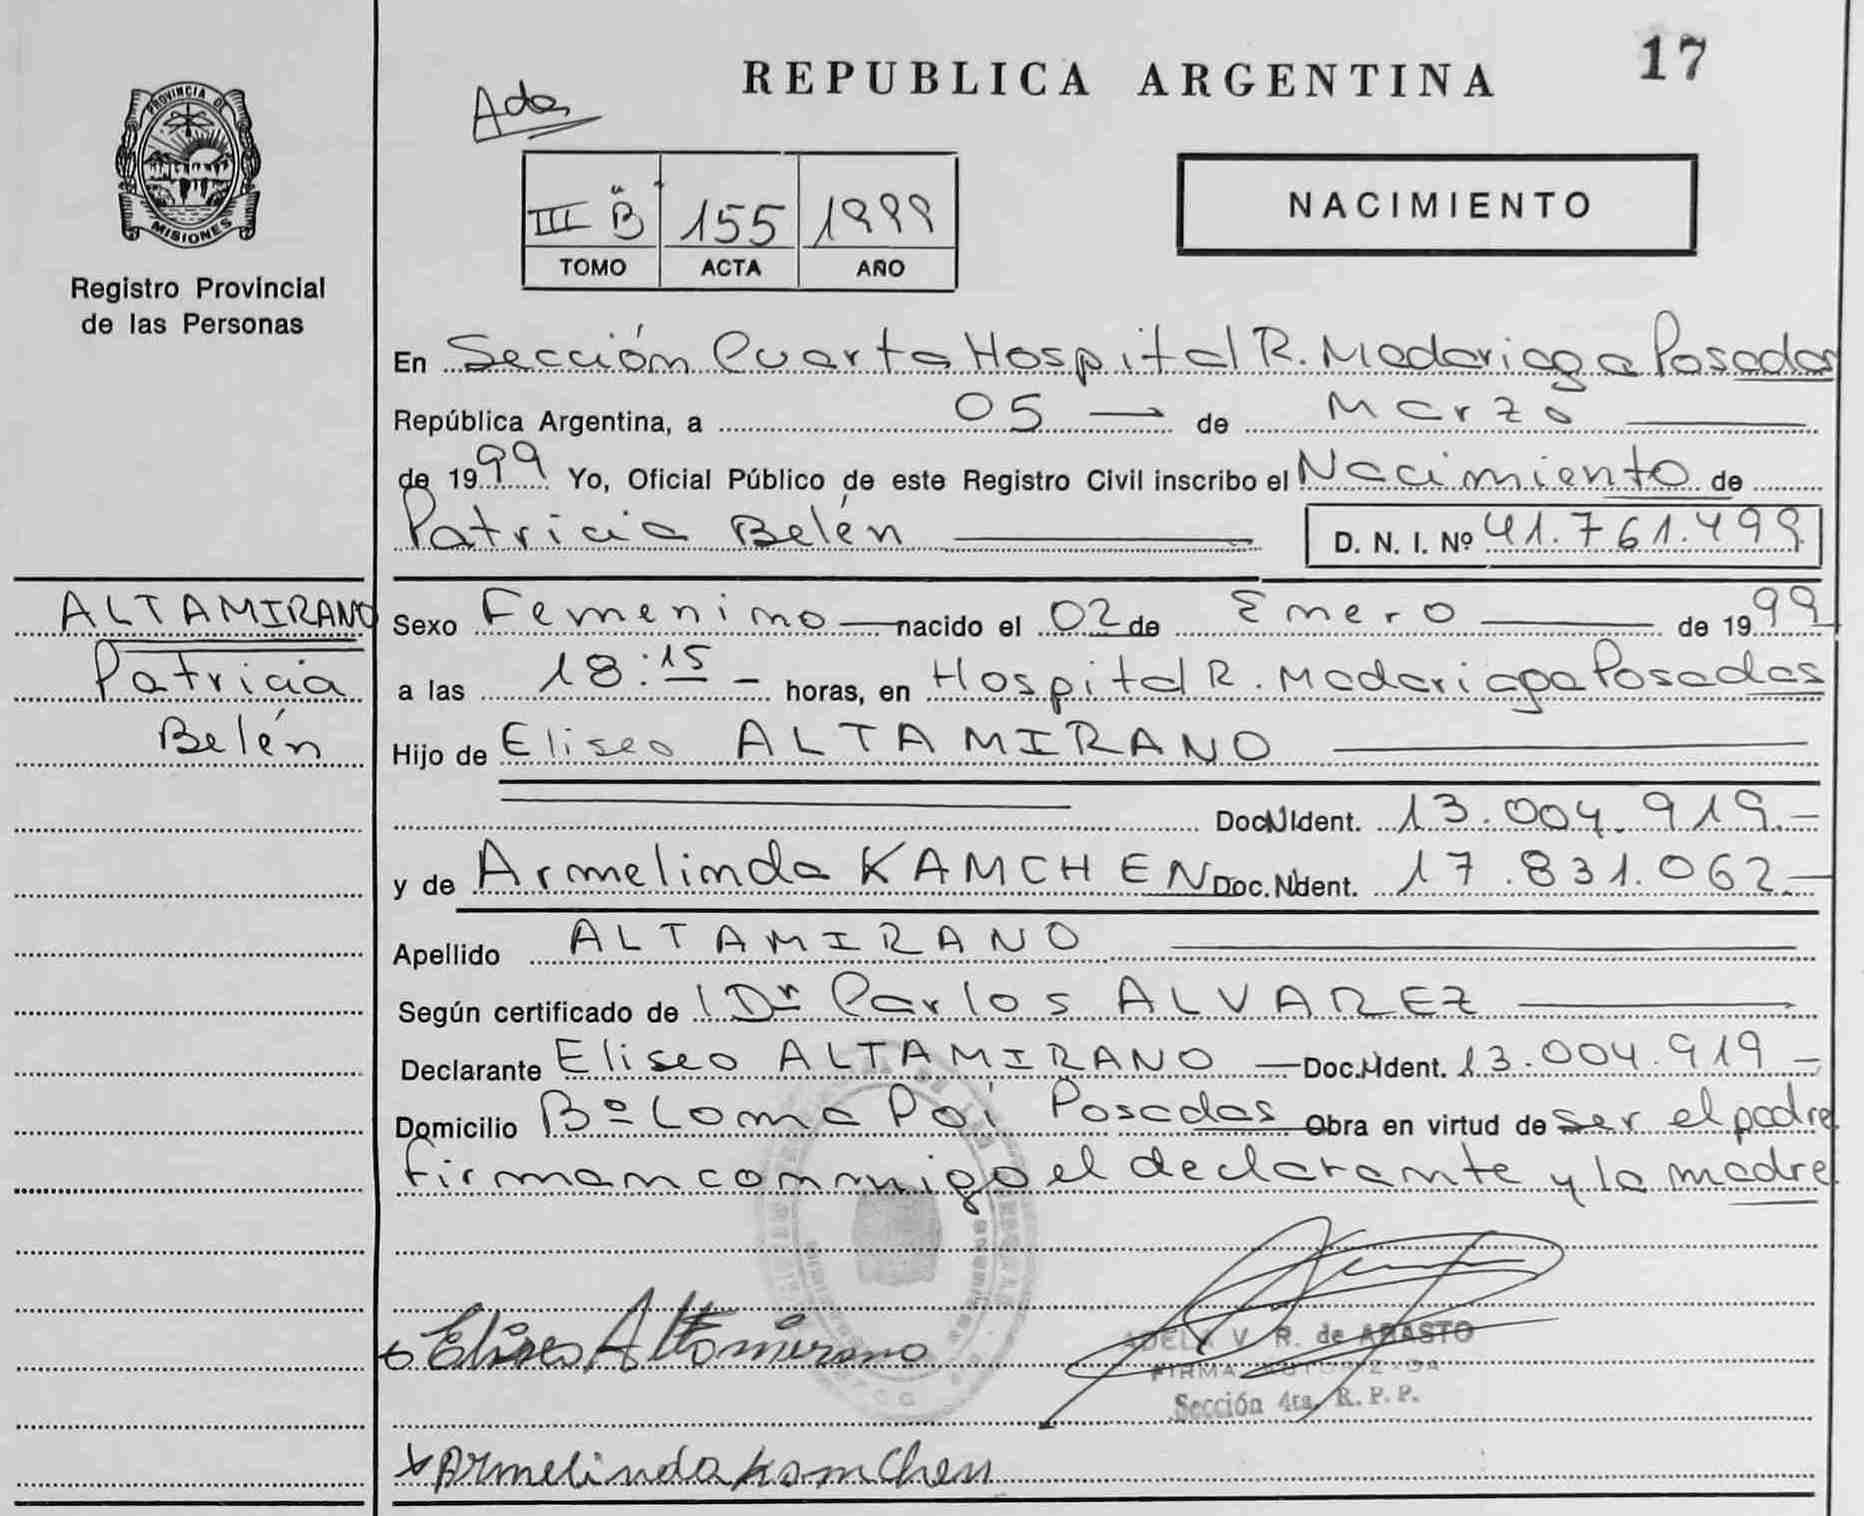 17
REPUBLICA ARGENTINA
PROVINCIA DE
MISIONES
Registro Provincial
de las Personas
III "B" 155 1999
TOMO ACTA AÑO
NACIMIENTO
En Sección Cuarta Hospital R. Madariaga Posadas
República Argentina, a 05 de Marzo
de 1999 Yo, Oficial Público de este Registro Civil inscribo el Nacimiento de
Patricia Belén D. N. I. Nº 41.761.499
ALTAMIRANO
Patricia
Belén
Sexo Femenino nacido el 02 de Enero de 1999
a las 18:15 - horas, en Hospital R. Madariaga Posadas
Hijo de Eliseo ALTAMIRANO
Doc.N.Ident. 13.004.919.-
y de Armelinda KAMCHEN Doc.N.Ident. 17.831.062-
Apellido ALTAMIRANO
Según certificado de Dr Carlos ALVAREZ
Declarante Eliseo ALTAMIRANO - Doc.N.Ident. 13.004.919-
Domicilio Bº Loma Poí Posadas Obra en virtud de ser el padre
firman conmigo el declarante y la madre
Eliseo Altamirano
ADELA V. R. de ABASTO
FIRMA AUTORIZADA
Sección 4ta. R. P. P.
x Armelinda Kamchen